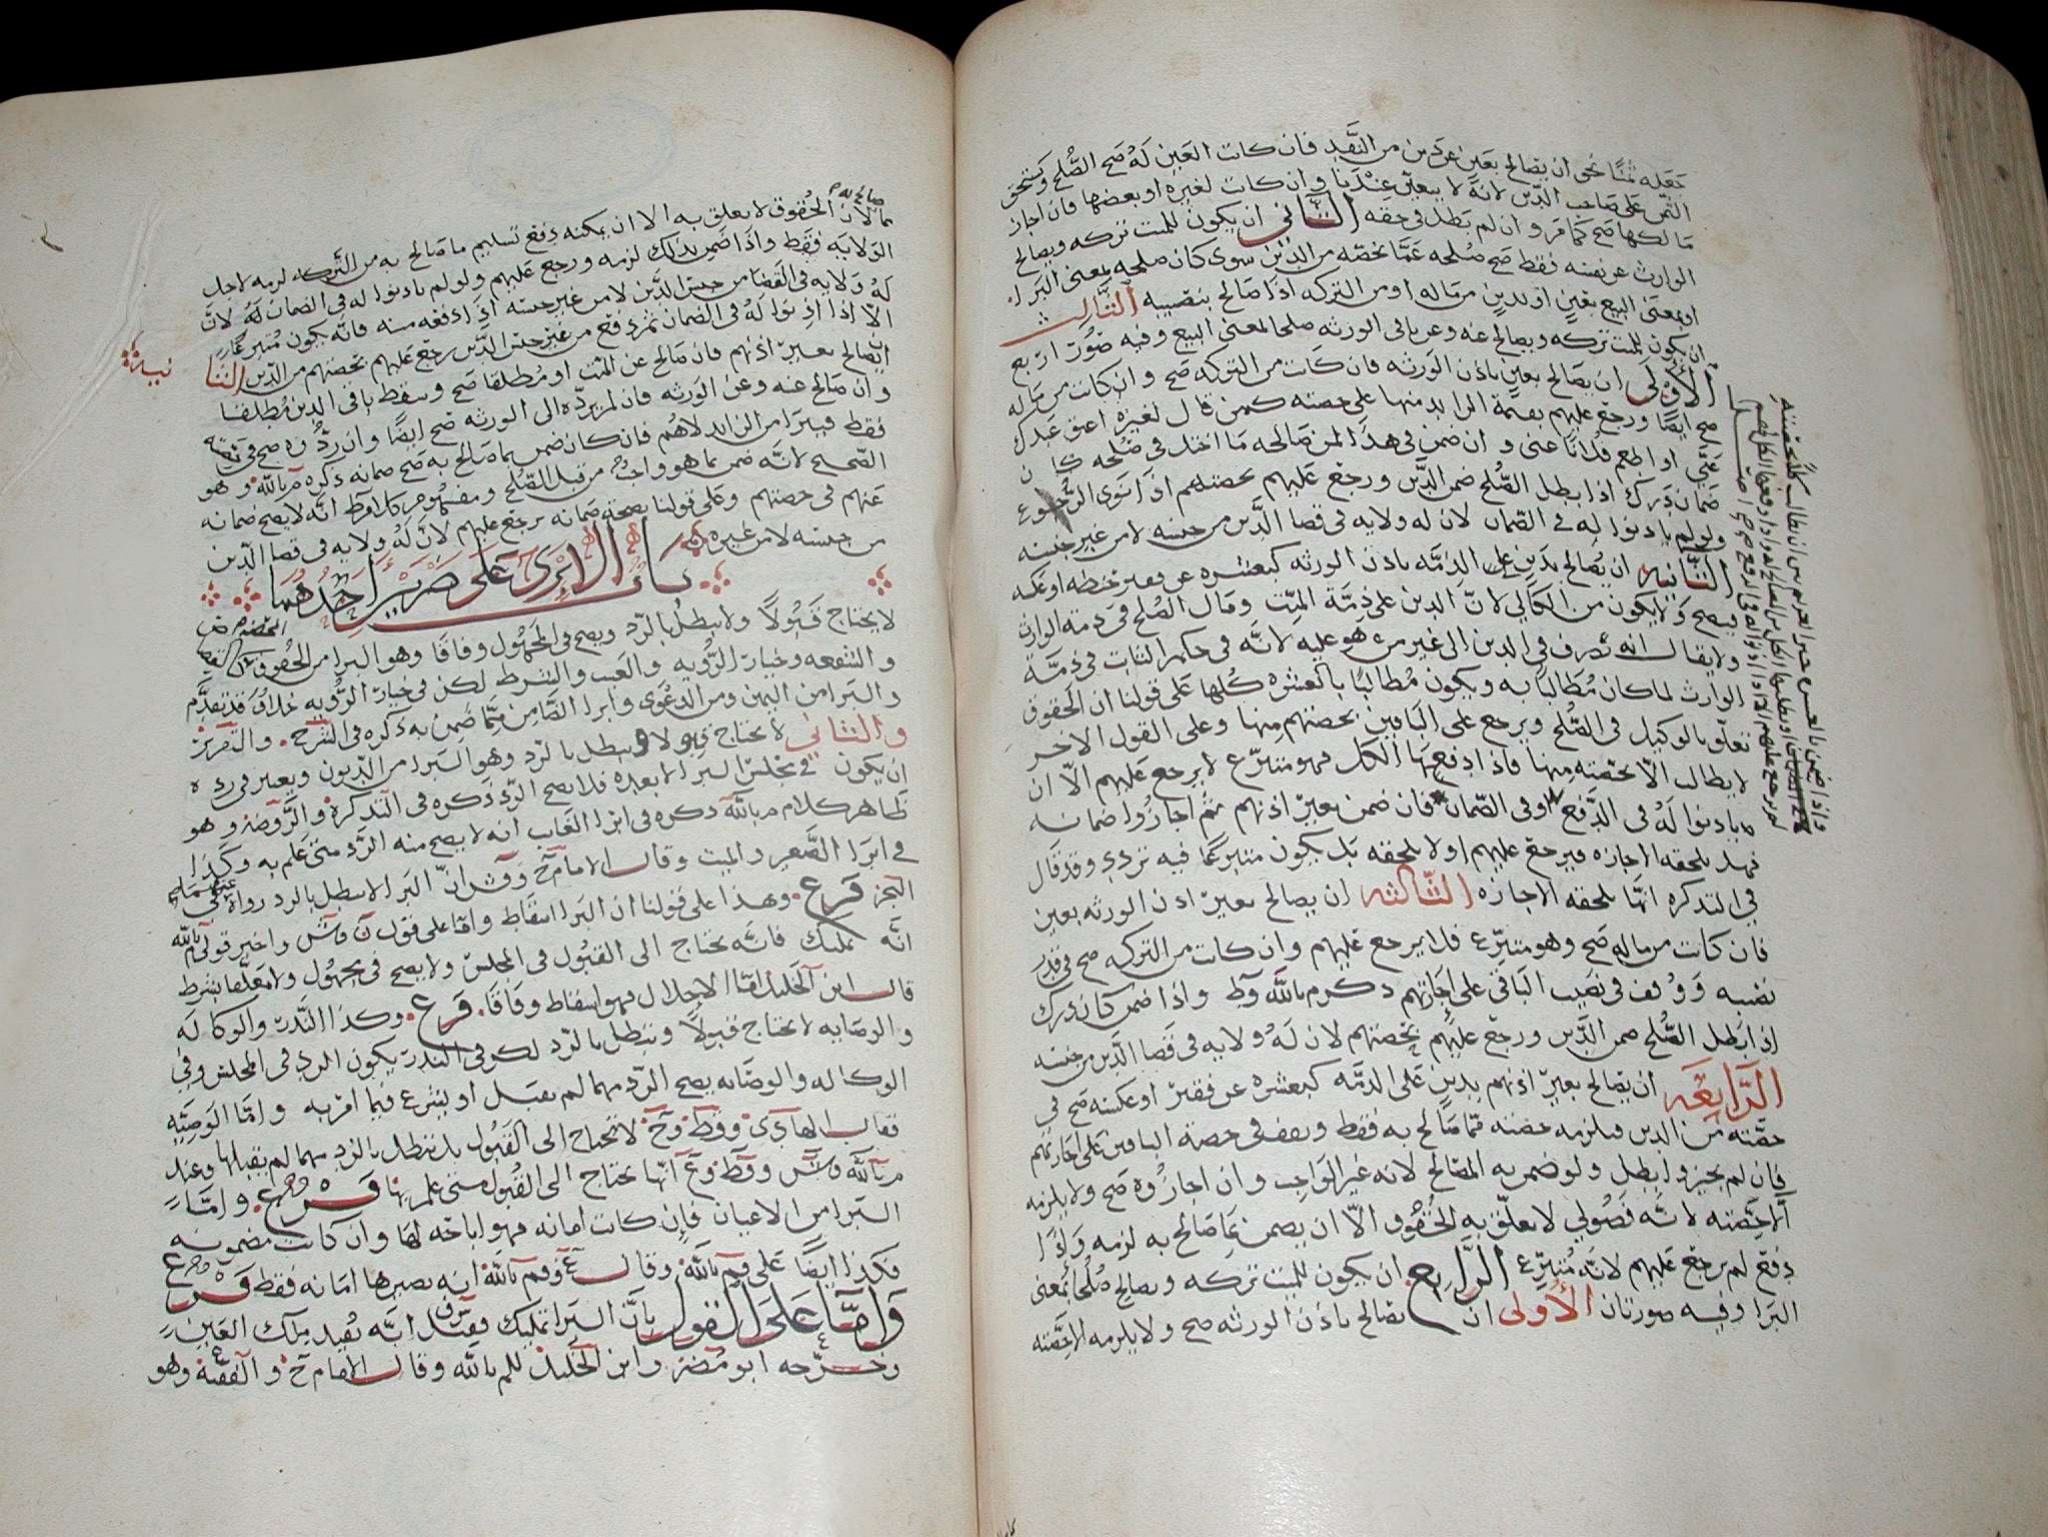 جعله ثمنًا نحو ان يصالح بعين عن دين من النقد فان كانت العين له صح الصلح ويستحق
الثمن على صاحب الدين لانه لا يتعين عندنا وان كانت لغيره او بعضها فان اجاز
مالكها صح كما مر وان لم بطل في حقه الثاني ان يكون للميت تركه ويصالح
الوارث عن نفسه فقط صح صلحه عما يخصه من الدين سوى كان صلحه بمعنى البرا
او بمعنى البيع بعين او بدين من ماله او من التركه اذا صالح بنصيبه الثالث
ان يكون للميت تركه ويصالح عنه وعن باقي الورثه صلحا بمعنى البيع وفيه صور اربع
الأولى ان يصالح بعين باذن الورثه فان كانت من التركه صح وان كانت من ماله
صح ايضًا ورجع عليهم بقيمة الزايد منها على حصته كمن قال لغيره اعتق عبدك
عني او اطعم فلانًا عني وان ضمن في هذا لمن صالحه ما اختل في صلحه كان
ضمان درك اذا بطل الصلح ضمن الدين ورجع عليهم بحصتهم اذا نوى الرجوع
ولو لم ياذنوا له في الضمان لان له ولايه في قضا الدين من جنسه لا من غير جنسه
الثانيه ان يصالح بدين على الذمه باذن الورثه كبعشره عن قفيز حنطه او عكسه
فيصح ولا يكون من الكالي لان الدين على ذمة الميت ومال الصلح في ذمة الوارث
ولا يقال انه تصرف في الدين الى غير من هو عليه لانه في حكم الثابت في ذمة
الوارث لما كان مطالبًا به ويكون مطالبًا بالعشره كلها على قولنا ان الحقوق
تعلق بالوكيل في الصلح ويرجع على الباقين بحصتهم منها وعلى القول الاخر
لا يطالب الا بحصته منها فاذا دفعها الكل فهو متبرع لا يرجع عليهم الا ان
ياذنوا له في الدفع او في الضمان فان ضمن بغير اذنهم ثم اجازوا ضمانه
فهل تلحقه الاجازه فيرجع عليهم او لا تلحقه بل يكون متبرعًا فيه تردد وقد قال
في التذكره انها تلحقه الاجازه الثالثه ان يصالح بغير اذن الورثه بعين
فان كانت من ماله صح وهو متبرع فلا يرجع عليهم وان كانت من التركه صح في قدر
نصيبه ووقف في نصيب الباقي على اجازتهم ذكره م بالله وط واذا ضمن كان درك
اذا بطل الصلح ضمن الدين ورجع عليهم بحصتهم لان له ولايه في قضا الدين من جنسه
الرابعه ان يصالح بغير اذنهم بدين على الذمه كبعشره عن قفيز او عكسه صح في
حصته من الدين فيلزمه حصته مما صالح به فقط ويقف في حصة الباقين على اجازتهم
فان لم يجيزوا بطل ولو ضمن به المصالح لانه غير الواجب وان اجازوه صح ولا يلزمه
الا حصته لانه فضولي لا تعلق به الحقوق الا ان يضمن بما صالح به لزمه واذا
دفع لم يرجع عليهم لانه متبرع الرابع ان يكون للميت تركه ويصالح صلحًا بمعنى
البرا وفيه صورتان الأولى ان يصالح باذن الورثه صح ولا يلزمه الا حصته
مما صالح به لان الحقوق لا تعلق به الا ان يمكنه دفع تسليم ما صالح به من التركه لزمه لاجل
الولايه فقط واذا ضمن بذلك لزمه ورجع عليهم ولو لم ياذنوا له في الضمان له لان
له ولايه في القضا من جنس الدين لا من غير جنسه اذا دفعه منه فانه يكون متبرعًا
الا اذا اذنوا له في الضمان ثم دفع من غير جنس الدين رجع عليهم بحصتهم من الدين الثانيه
ان يصالح بغير اذنهم فان صالح عن الميت او مطلقا صح وسقط باقي الدين مطلقا
وان صالح عنه وعن الورثه فان لم يرده الى الورثه صح ايضًا وان ردوه صح في نصيبه
فقط فيبرا من الزايد لا هم فان كان ضمن بما صالح به صح ضمانه ذكره م بالله وهو
الصحيح لانه ضمن بما هو واجب من قبل الصلح ومفهوم كلام ط انه لا يصح ضمانه
عنهم في حصتهم وعلى قولنا بصحة ضمانه يرجع عليهم لان له ولايه في قضا الدين
من جنسه لا من غيره
باب الابرى على ضربين احدهما
لا يحتاج قبولًا ولا يبطل بالرد ويصح في المجهول وفاقا وهو البرا من الحقوق
والشفعه وخيار الرؤيه والعيب والشرط لكن في خيار الرؤيه خلاف قد تقدم
والبرا من اليمين ومن الدعوى وابرا الضامن مما ضمن به ذكره في الشرح والتقرير
والثاني لا يحتاج قبولا ويبطل بالرد وهو البرا من الديون ويعتبر في رده
ان يكون في مجلس البرا لا بعده فلا يصح الرد ذكره في التذكرة والروضة وهو
ظاهر كلام م بالله ذكره في ابرا الغايب انه لا يصح منه الرد متى علم به وكذا
في ابرا الصغير والميت وقال الامام ح وقش ان البرا لا يبطل بالرد رواه عنهما في
البحر فرع وهذا على قولنا ان البرا اسقاط واما على قول ن وش واخير قولي م بالله
انه تمليك فانه يحتاج الى القبول في المجلس ولا يصح في مجهول ولا معلقا بشرط
قال ابن الخليل اما الاحلال فهو اسقاط وفاقا فرع وكذا النذر والوكاله
والوصايه لا يحتاج قبولًا ويبطل بالرد لكن في النذر يكون الرد في المجلس وفي
الوكاله والوصايه يصح الرد مهما لم يقبل او يشرع فيما امر به واما الوصيه
فقال الهادي وقط وح لا تحتاج الى القبول بل تبطل بالرد مهما لم يقبلها وعند
م بالله وش وقط وع انها تحتاج الى القبول متى علم بها فرع واما
البرا من الاعيان فان كانت امانه فهو اباحه لها وان كانت مضمونه
فكذا ايضًا على قم بالله وقال ع وقم بالله انه يصيرها امانه فقط فرع
وامَّا على القول بان البرا تمليك فعند انه يفيد ملك العين
وخرجه ابو مضر وابن الخليل للم بالله وقال الامام ح والفقيه وهو